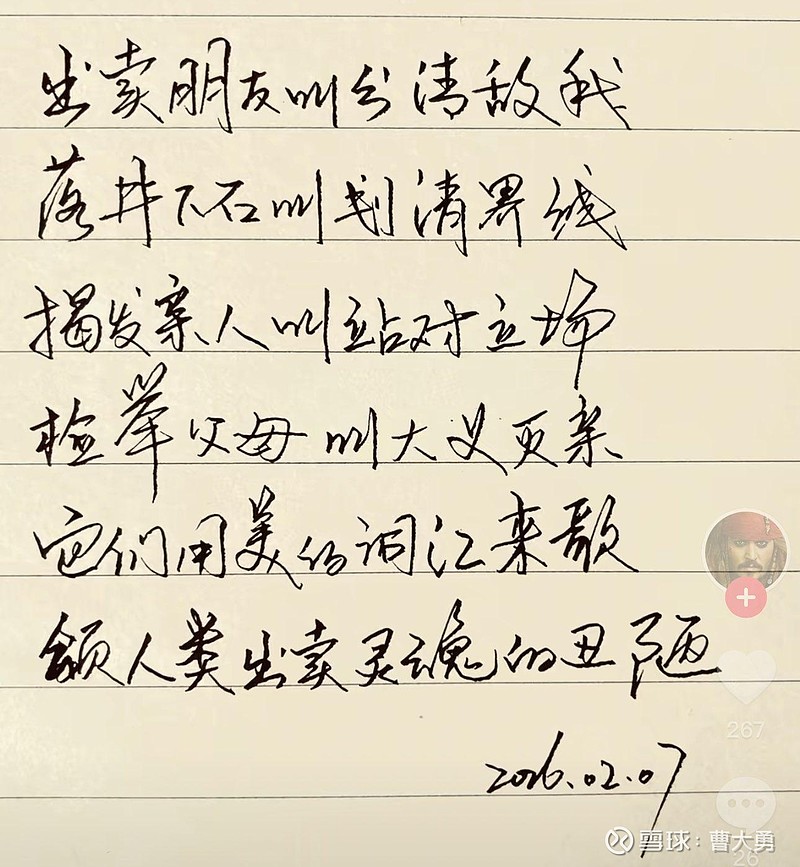 出卖朋友叫分清敌我
落井下石叫划清界线
揭发亲人叫站对立场
检举父母叫大义灭亲
它们用美的词汇来歌
颂人类出卖灵魂的丑陋
2026.02.07
267
26
雪球：曹大勇